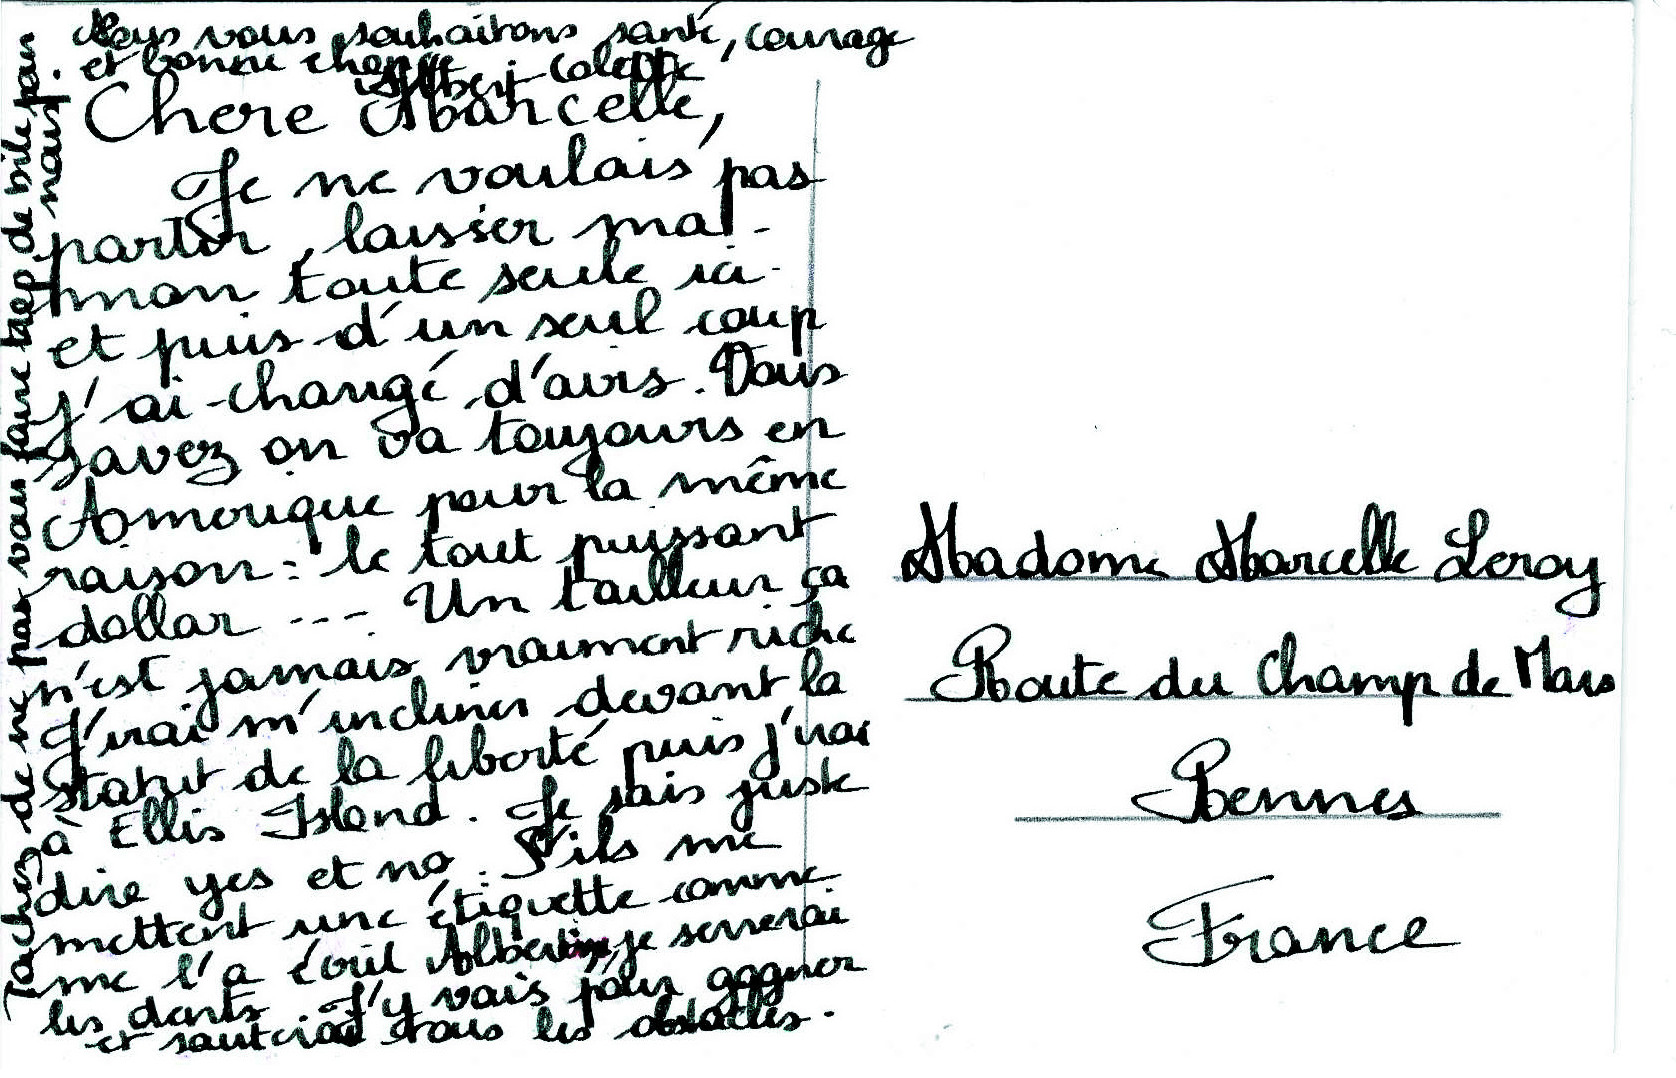 Nous vous souhaitons santé, courage
et bonne chance. Colette
Albert
Chere Marcelle,
Je ne voulais pas
partir, laisser ma-
man toute seule ici
et puis d'un seul coup
j'ai changé d'avis. Vous
savez on va toujours en
Amerique pour la même
raison : le tout puissant
dollar .... Un tailleur ça
n'est jamais vraiment riche
J'irai m'incliner devant la
statut de la liberté puis j'irai
à Ellis Island. Je sais juste
dire yes et no. S'ils me
mettent une étiquette comme
me l'a écrit Albertine, je serrerai
les dents. J'y vais pour gagner
et sauterai tous les obstacles.
Tachez de ne pas vous faire trop de bile pour
nous.
Madame Marcelle Leroy
Route du Champ de Mars
Rennes
France